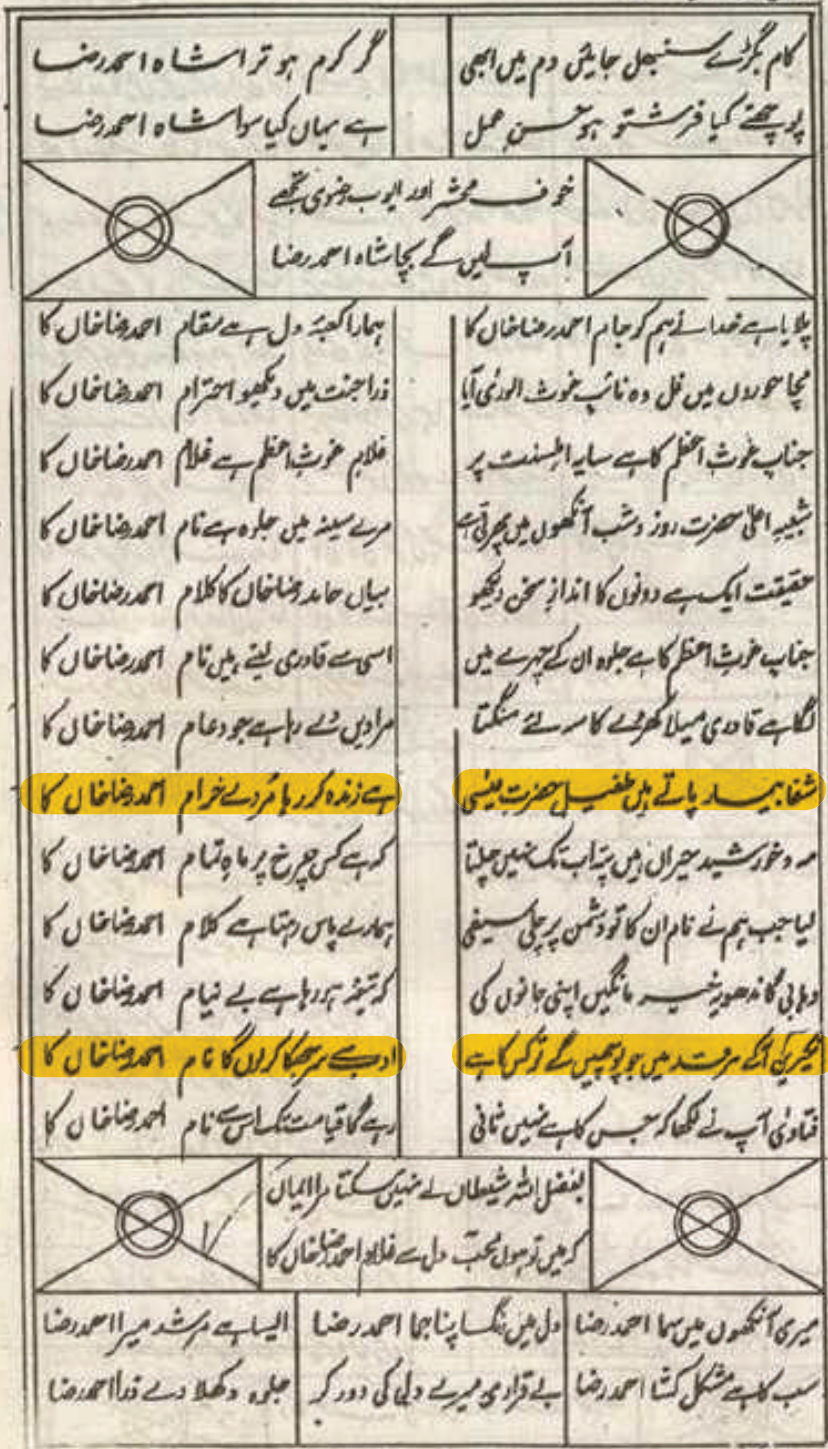 کام بگڑے سنبھل جایئں دم میں ابھی گر کرم ہو ترا شاہ احمد رضا
پوچھتے کیا فرشتو ہو حسن عمل ہے یہاں کیا سوا شاہ احمد رضا
خوف محشر اور ایوب رضوی تجھے
آپ لیں گے بچا شاہ احمد رضا
پلایا ہے خدا نے ہم کو جام احمد رضا خاں کا ہمارا کعبۂ دل ہے مقام احمد رضا خاں کا
مچا حوروں میں غل وہ نائب غوث الورٰی آیا ذرا جنت میں دیکھیو احترام احمد رضا خاں کا
جناب غوث اعظم کا ہے سایہ اہلسنت پر غلام غوث اعظم ہے غلام احمد رضا خاں کا
شبیہ اعلٰی حضرت روز و شب آنکھوں میں پھرتی ہے مرے سینہ میں جلوہ ہے نام احمد رضا خاں کا
حقیقت ایک ہے دونوں کا انداز سخن دیکھو بیاں حامد رضا خاں کا کلام احمد رضا خاں کا
جناب غوث اعظم کا ہے جلوہ ان کے چہرے میں اسی سے قادری لیتے ہیں نام احمد رضا خاں کا
لگا ہے قادری میلا کھڑے کا سر لئے منگتا مرادیں دے رہا ہے جود عام احمد رضا خاں کا
شفا بیمار پاتے ہیں طفیل حضرت عیسٰی ہے زندہ کر رہا مردے خرام احمد رضا خاں کا
مہ و خورشید حیراں ہیں پتہ اب تک نہیں چلتا کہ ہے کس چرخ پر ماہ تمام احمد رضا خاں کا
لیا جب ہم نے نام ان کا تو دشمن پر چلی سیفی ہمارے پاس رہتا ہے کلام احمد رضا خاں کا
وہابی گاندھویہ خیر مانگیں اپنی جانوں کی کہ تیغہ ہو رہا ہے بے نیام احمد رضا خاں کا
نکیرین آکے مرقد میں جو پوچھیں گے تو کس کا ہے ادب سے سر جھکا کر لوں گا نام احمد رضا خاں کا
فتاوٰی آپ نے لکھا کہ جس کا ہے نہیں ثانی رہے گا قیامت تک اس سے نام احمد رضا خاں کا
بفضل اللہ شیطاں لے نہیں سکتا مرا ایماں
کہ میں تو ہوں محب دل سے غلام احمد رضا خاں کا
میری آنکھوں میں سما احمد رضا دل میں رنگ اپنا جما احمد رضا ایسا ہے مرشد میرا احمد رضا
سب کا ہے مشکل کشا احمد رضا بے قراری میرے دل کی دور کر جلوہ دکھلا دے ذرا احمد رضا